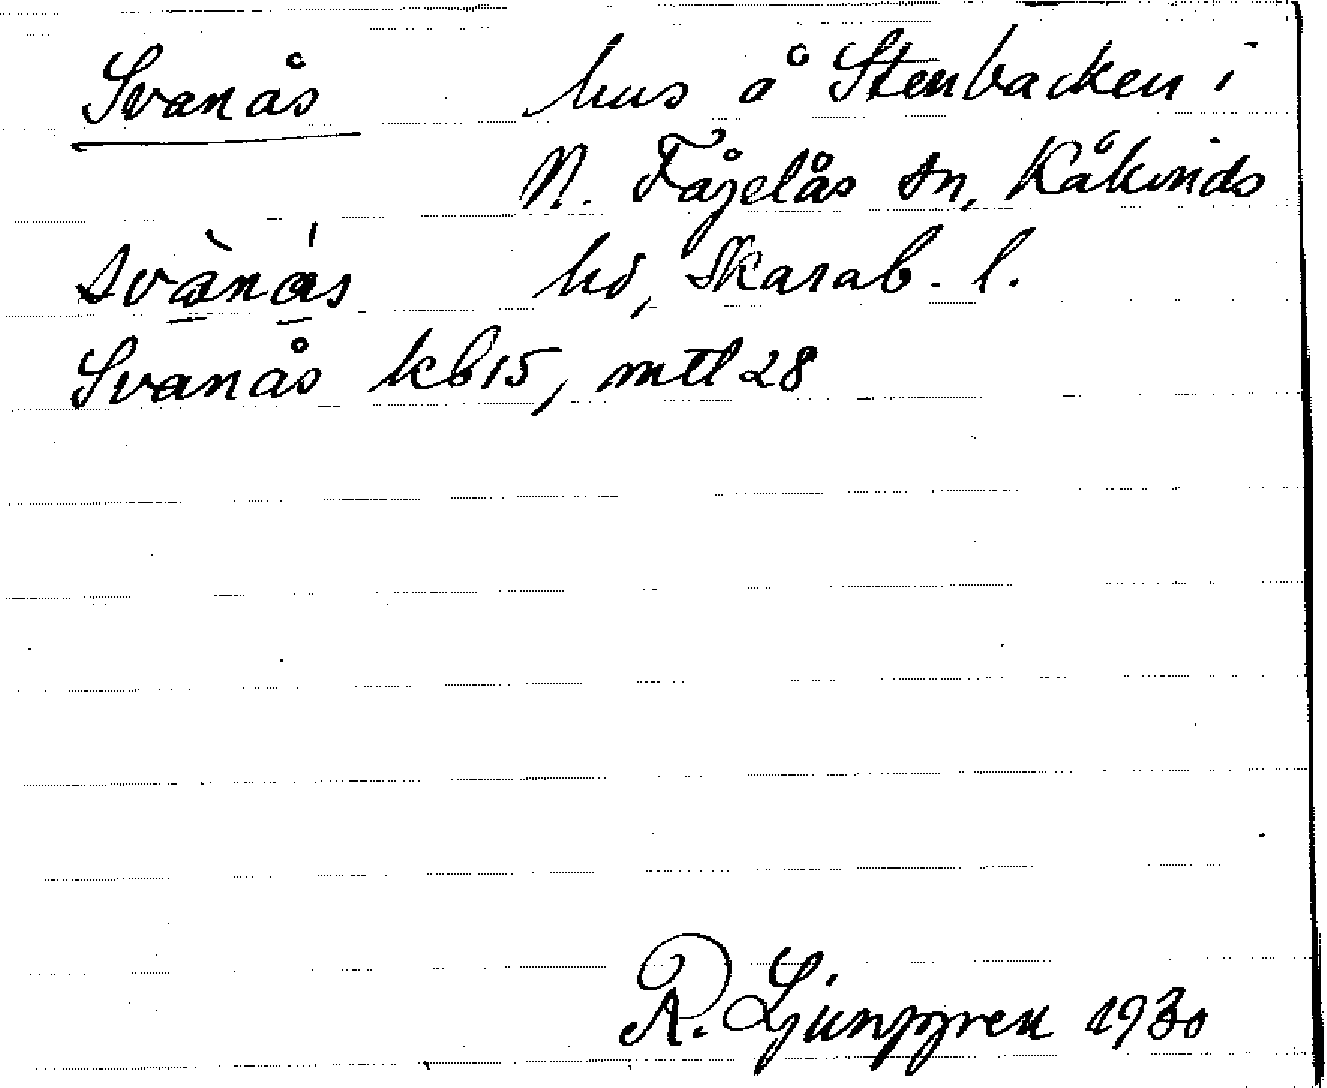 Svanås hus å Stenbacken i
N. Fågelås sn, Kåkinds
svànás hd, Skarab. l.
Svanås kb15, mtl 28
R. Ljunggren 1930